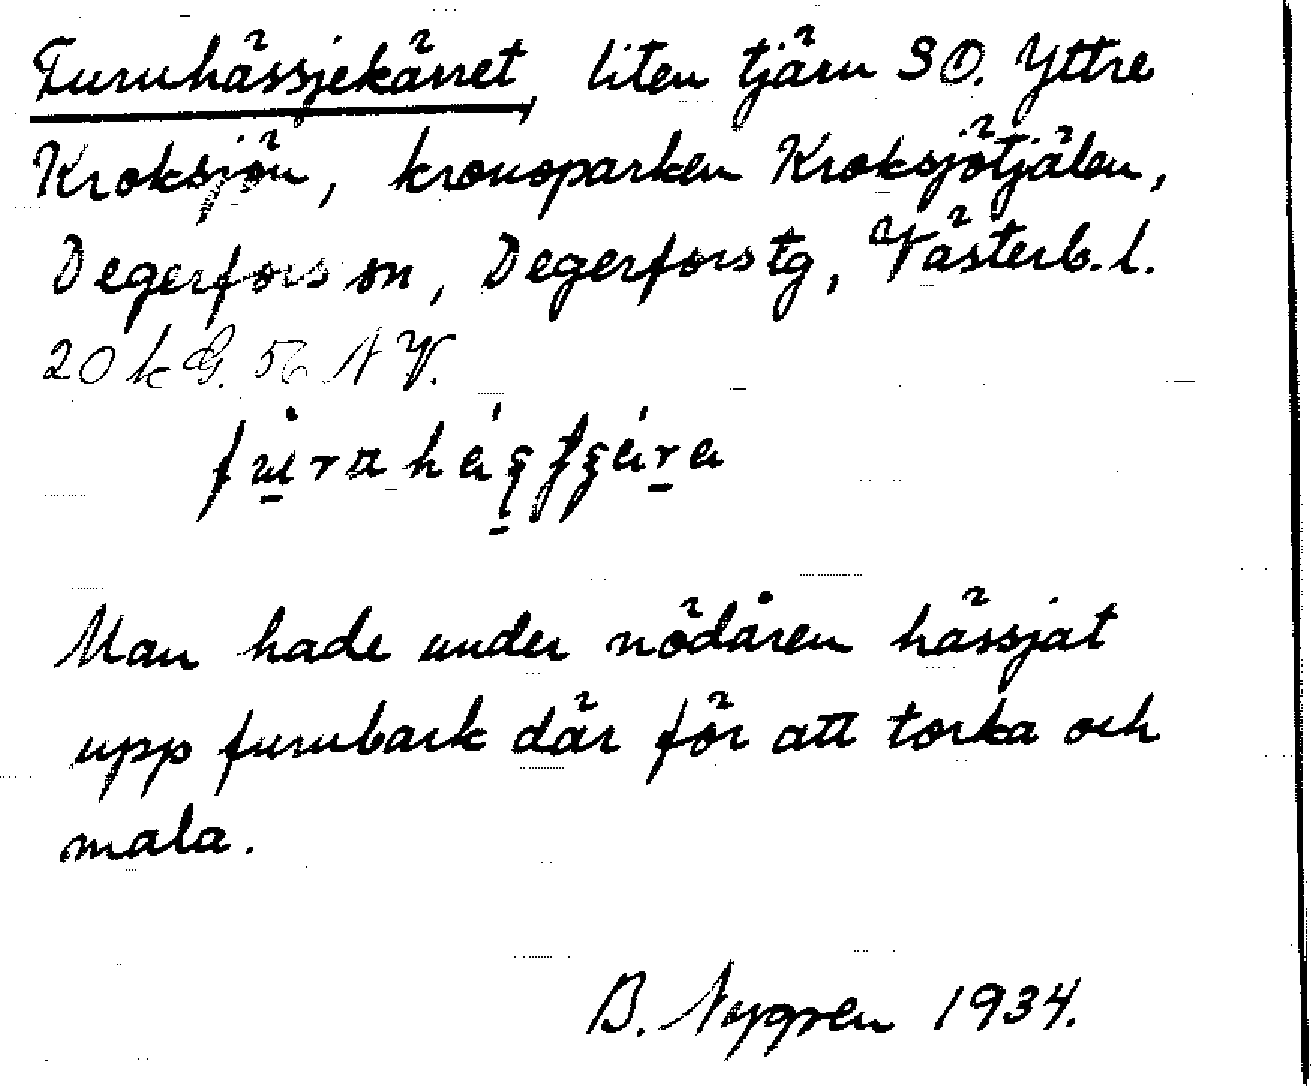 Furuhässjekärret, liten tjärn SO. Yttre
Kroksjön, kronoparken Kroksjötjälen,
Degerfors sn, Degerfors tg, Västerb. l.
20 k G. 56 N V.
Man hade under nödåren hässjat
upp furubark där för att torka och
mala.
B. Nygren 1934.